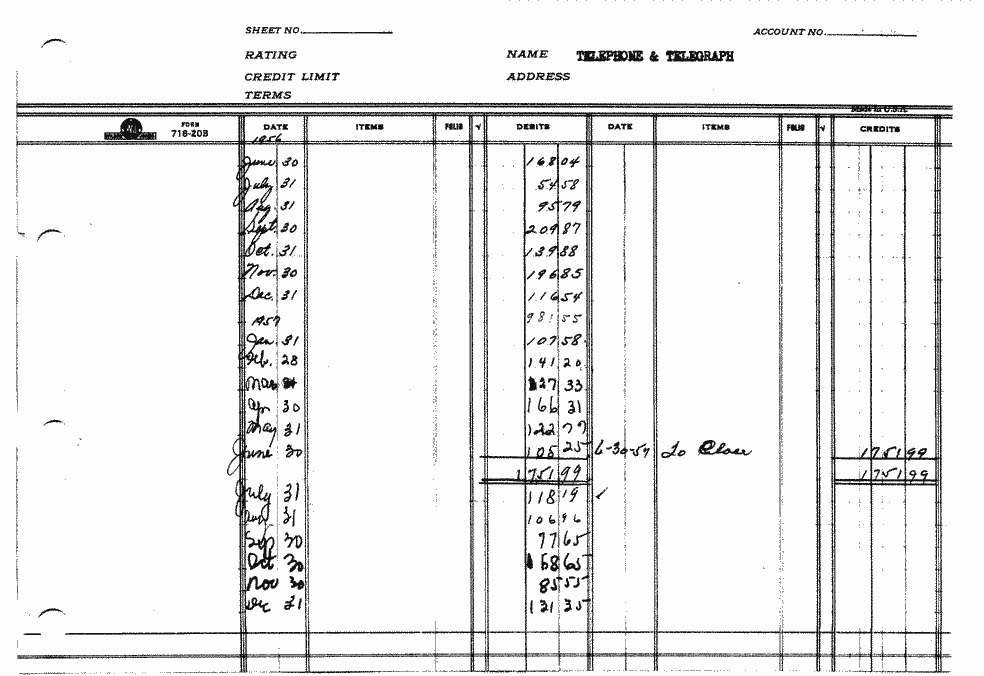 SHEET NO. ACCOUNT NO.
RATING NAME TELEPHONE & TELEGRAPH
CREDIT LIMIT ADDRESS
TERMS
Made in U.S.A.
FORM
718-20B
DATE ITEMS FOLIO √ DEBITS DATE ITEMS FOLIO √ CREDITS
1956
June 30 168 04
July 31 54 58
Aug. 31 95 79
Sept. 30 209 87
Oct. 31 139 88
Nov. 30 196 85
Dec. 31 116 54
1957 981 55
Jan. 31 107 58
Feb. 28 141 20
Mar 31 127 33
Apr 30 166 31
May 31 122 77
June 30 105 25 6-30-57 To Close 1751 99
1751 99 1751 99
July 31 118 19 ✓
Aug 31 106 96
Sep 30 77 65
Oct 30 58 65
Nov 30 85 55
Dec 31 131 35